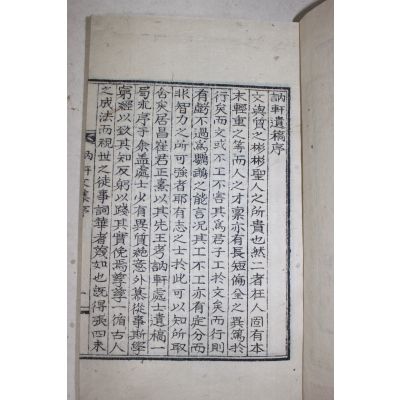 訥軒遺稿序
文與質之彬彬聖人之所貴也然二者在人固有本
末輕重之等而人之才禀亦有長短偏全之異篤於
行矣而文或不工不害其爲君子工於文矣而行則
有虧不過爲鸚鵡之能言况其工不工亦有定分而
非智力之所可強者耶有志之士於此可以知所取
舍矣居昌崔君正熹以其先王考訥軒處士遺稿一
蜀求序于余盖處士少有異質絶意外慕從事斯學
窮經以致其知反躬以踐其實俛焉孳孳一循古人
之成法而視世之徒事詞華者蔑如也旣得張四未
訥軒文集序
一